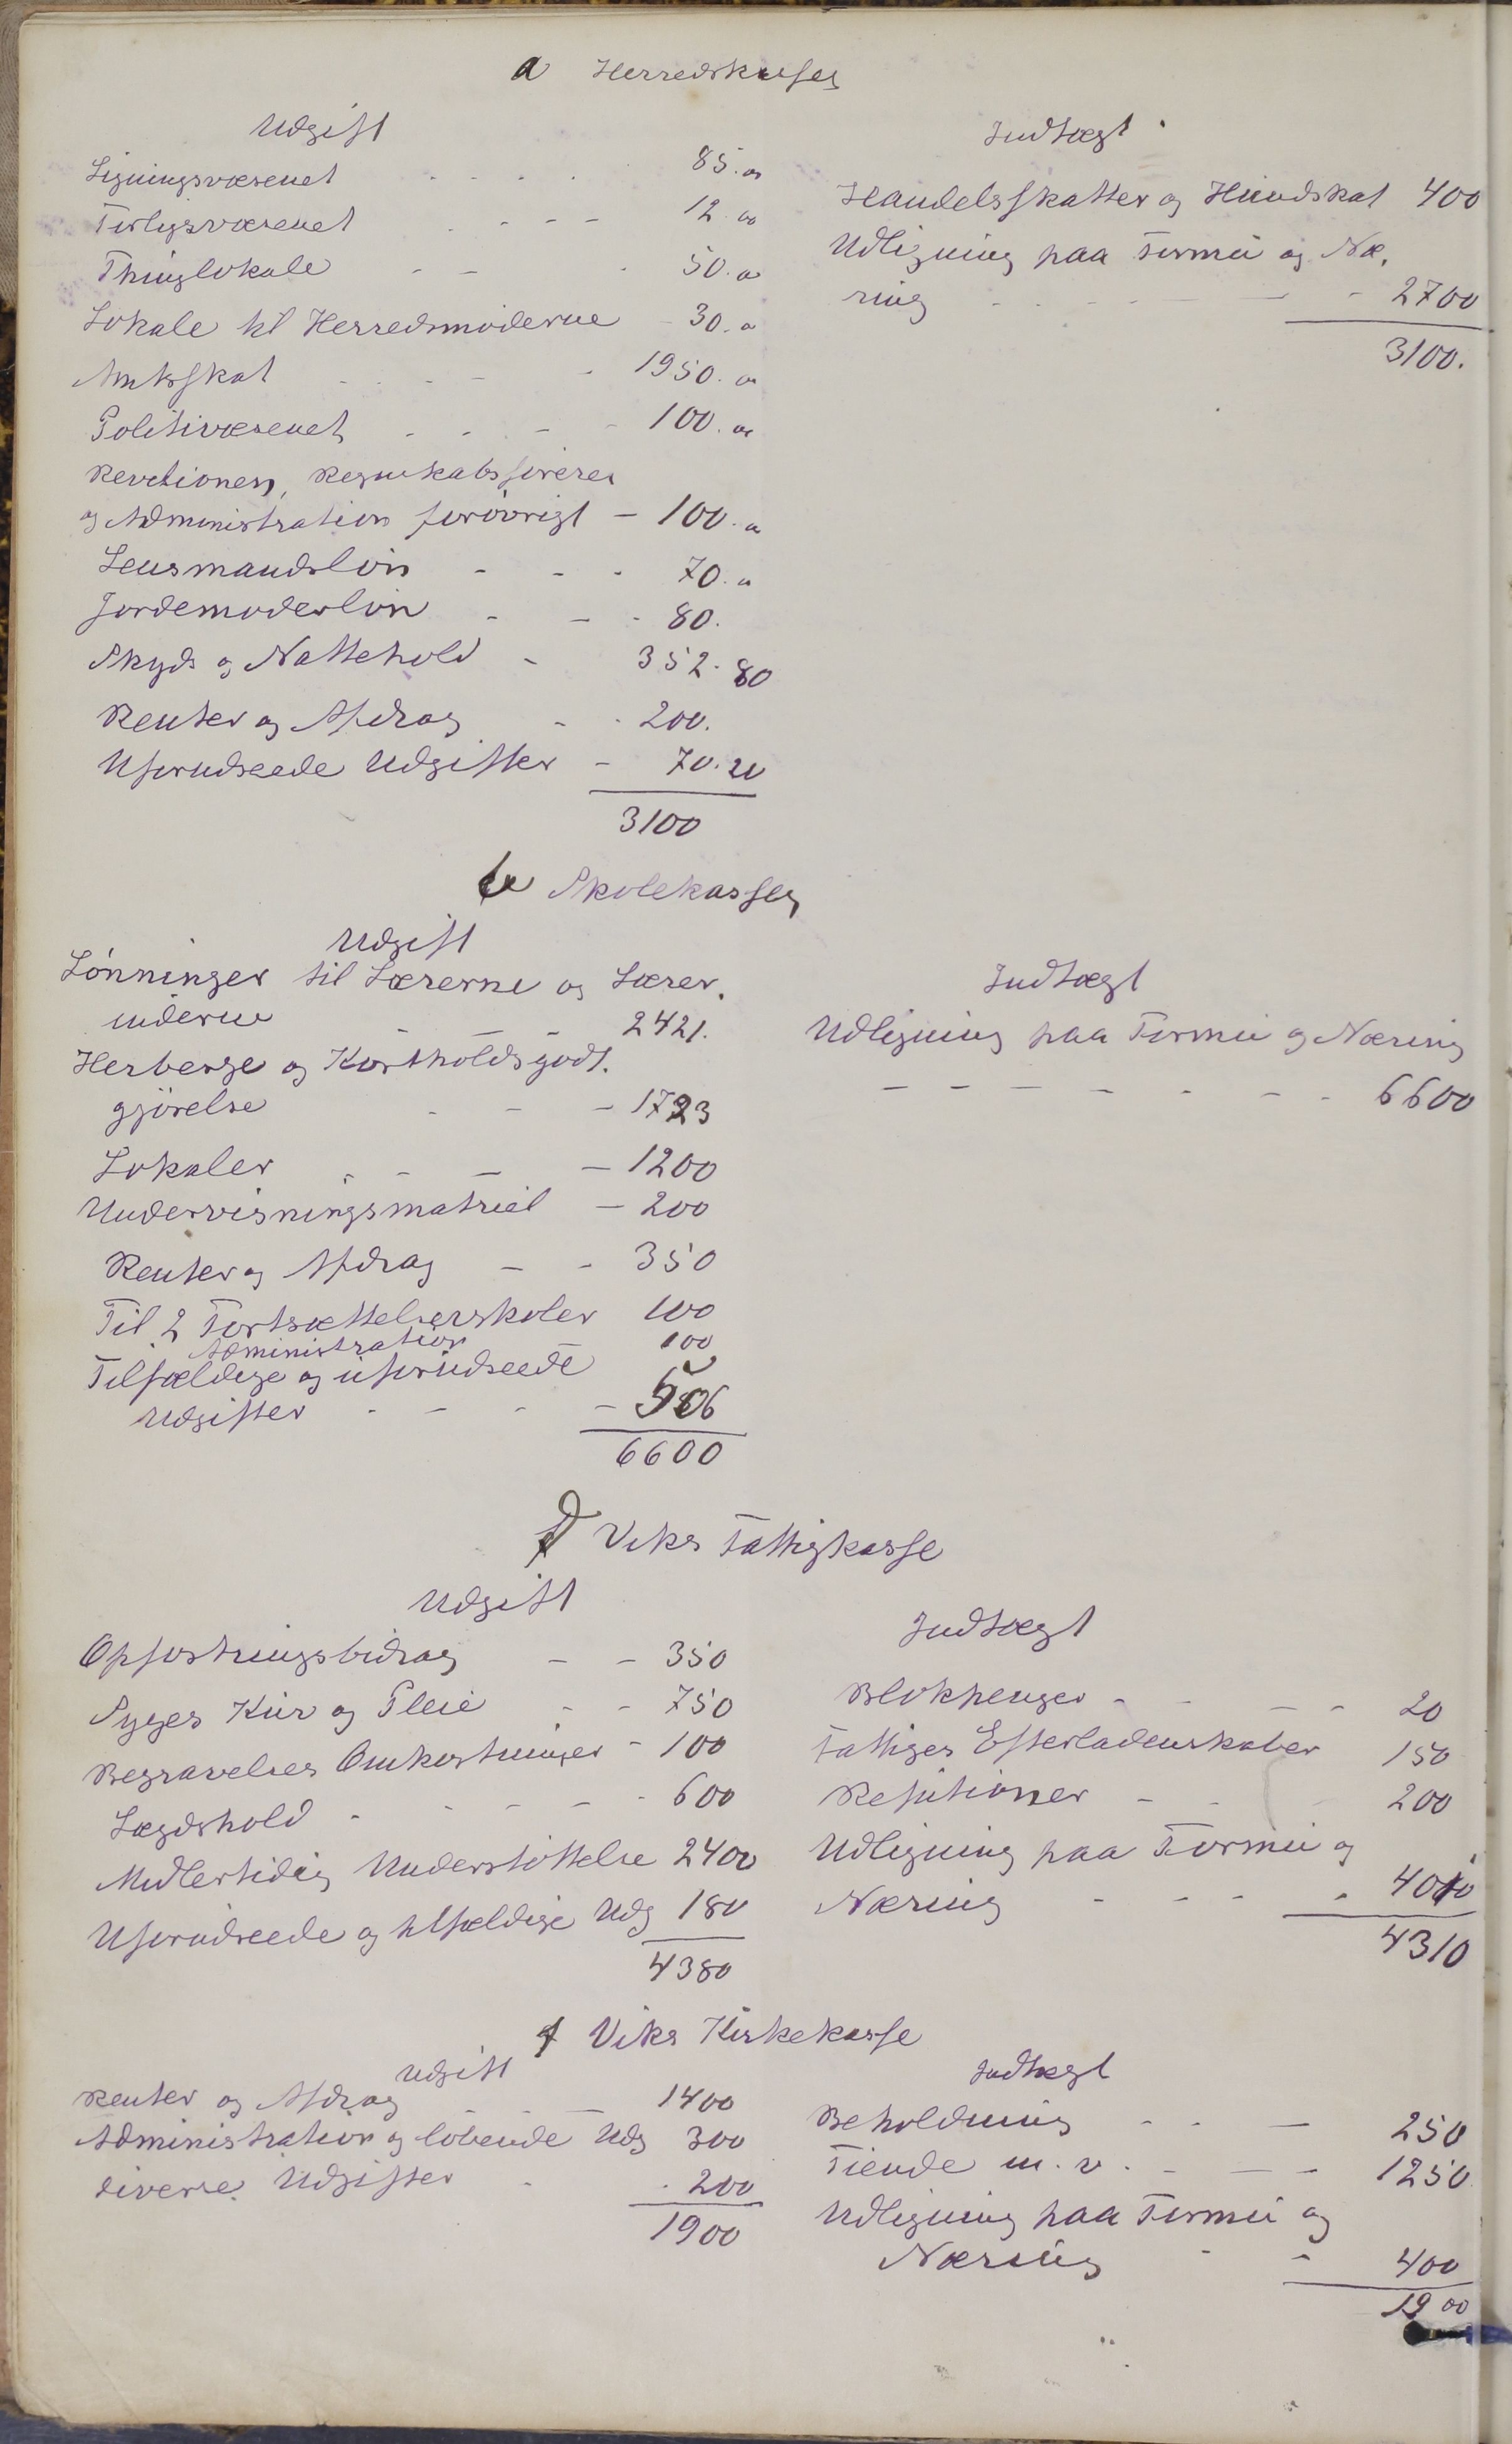 a Herredskassen
Udgift
Ligningsvæsenet - - - - 85.00
Forligsvæsenet - - - - 12.00
Thinglokale - - - 50.00
Lokale til Herredsmøderne - 30.00
Amtsskat - - - - - 1950.00
Politivæsenet - - - - 100.00
Revetionen, Regnskabsførerer
og Administration forövrigt - 100.00
Lensmandslön - - - 70.00
Jordemoderlön - - - 80.
Skyds og Nattehold - 352.80
Renter og Afdrag - - 200.
Uforudseede Udgifter - 70.20
3100
Indtægt
Handelsskatter og Hundskat 400
Udligning paa Formui og Næ,
ring - - - - - - - 2700
3100.
b Skolekassen
Udgift
Lónninger til Lærerne og Lærer,
inderne - - - 2421.
Herberge og Kostholdsgodt.
gjörelse - - - 1723
Lokaler - - - - - 1200
Undervisningsmatriel - 200
Renter og Afdrag - - 350
Til 2 Fortsættelsesskoler 100
Administration 100
Tilfældige og uforudseede
Udgifter - - - - 506
6600
Indtægt
Udligning paa Formui og Næring
- - - - - - - 6600
d Viks Fattigkasse
Udgift
Opfostringsbidrag - - 350
Syges Kur og Pleie - - 750
Begravelses Omkostninger - 100
Lægdshold - - - - - 600
Midlertidig Understöttelse 2400
Uforudseede og tilfældige Udg 180
4380
Indtægt
Blokpenger - - - - 20
Fattiges Efterladenskaber 150
Refusioner - - - 200
Udligning paa Formui og
Næring - - - - 4010
4310
f Viks Kirkekasse
Udgift
Renter og Afdrag - - 1400
Administration og löbende Udg 300
diverse Udgifter - - 200
1900
Indtægt
Beholdning - - - 250
Tiende m. v. - - - 1250
Udligning paa Formui og
Næring - - 400
1900